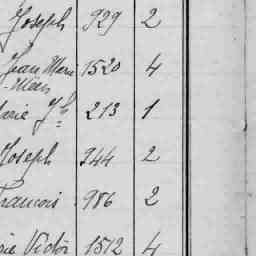 Joseph 929 2
Jean Marie 1520 4
Marie Jh 213 1
Joseph 344 2
Francois 986 2
Victor 1512 4